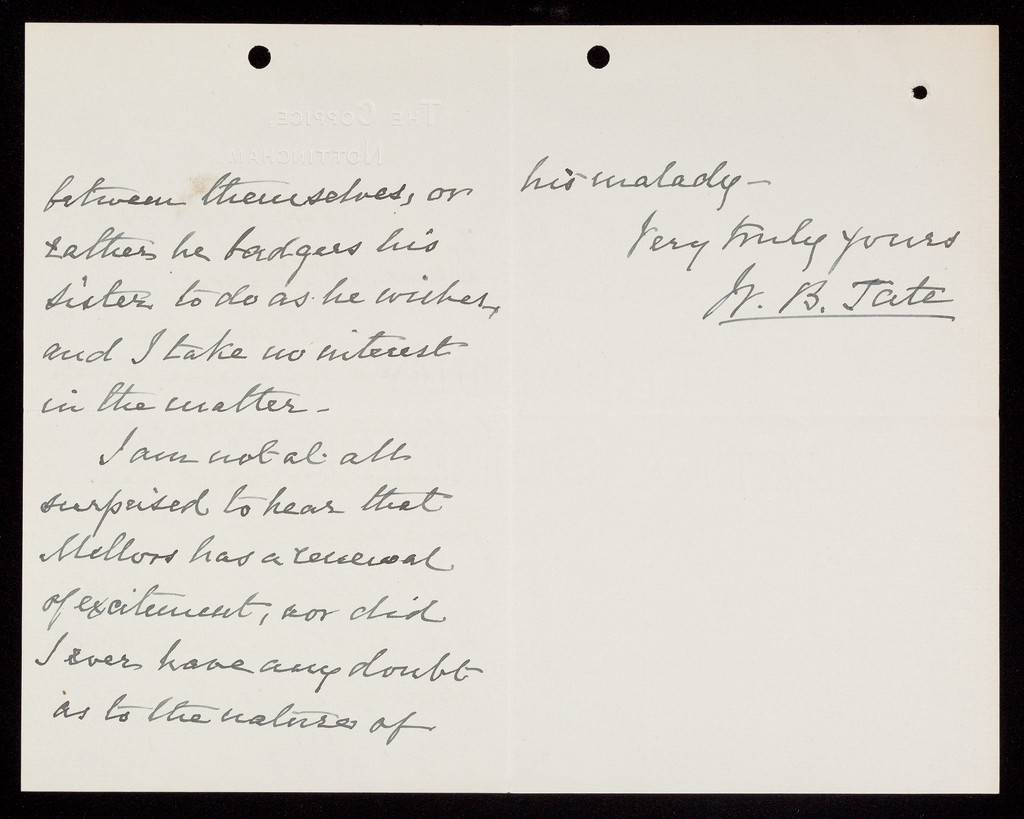 THE COPPICE,
NOTTINGHAM.
between themselves, or
rather he badgers his
sister to do as he wishes,
and I take no interest
in the matter -
I am not at all
surprised to hear that
Mellors has a renewal
of excitement, nor did
I ever have any doubt
as to the nature of
his malady -
Very truly yours
W. B. Tate